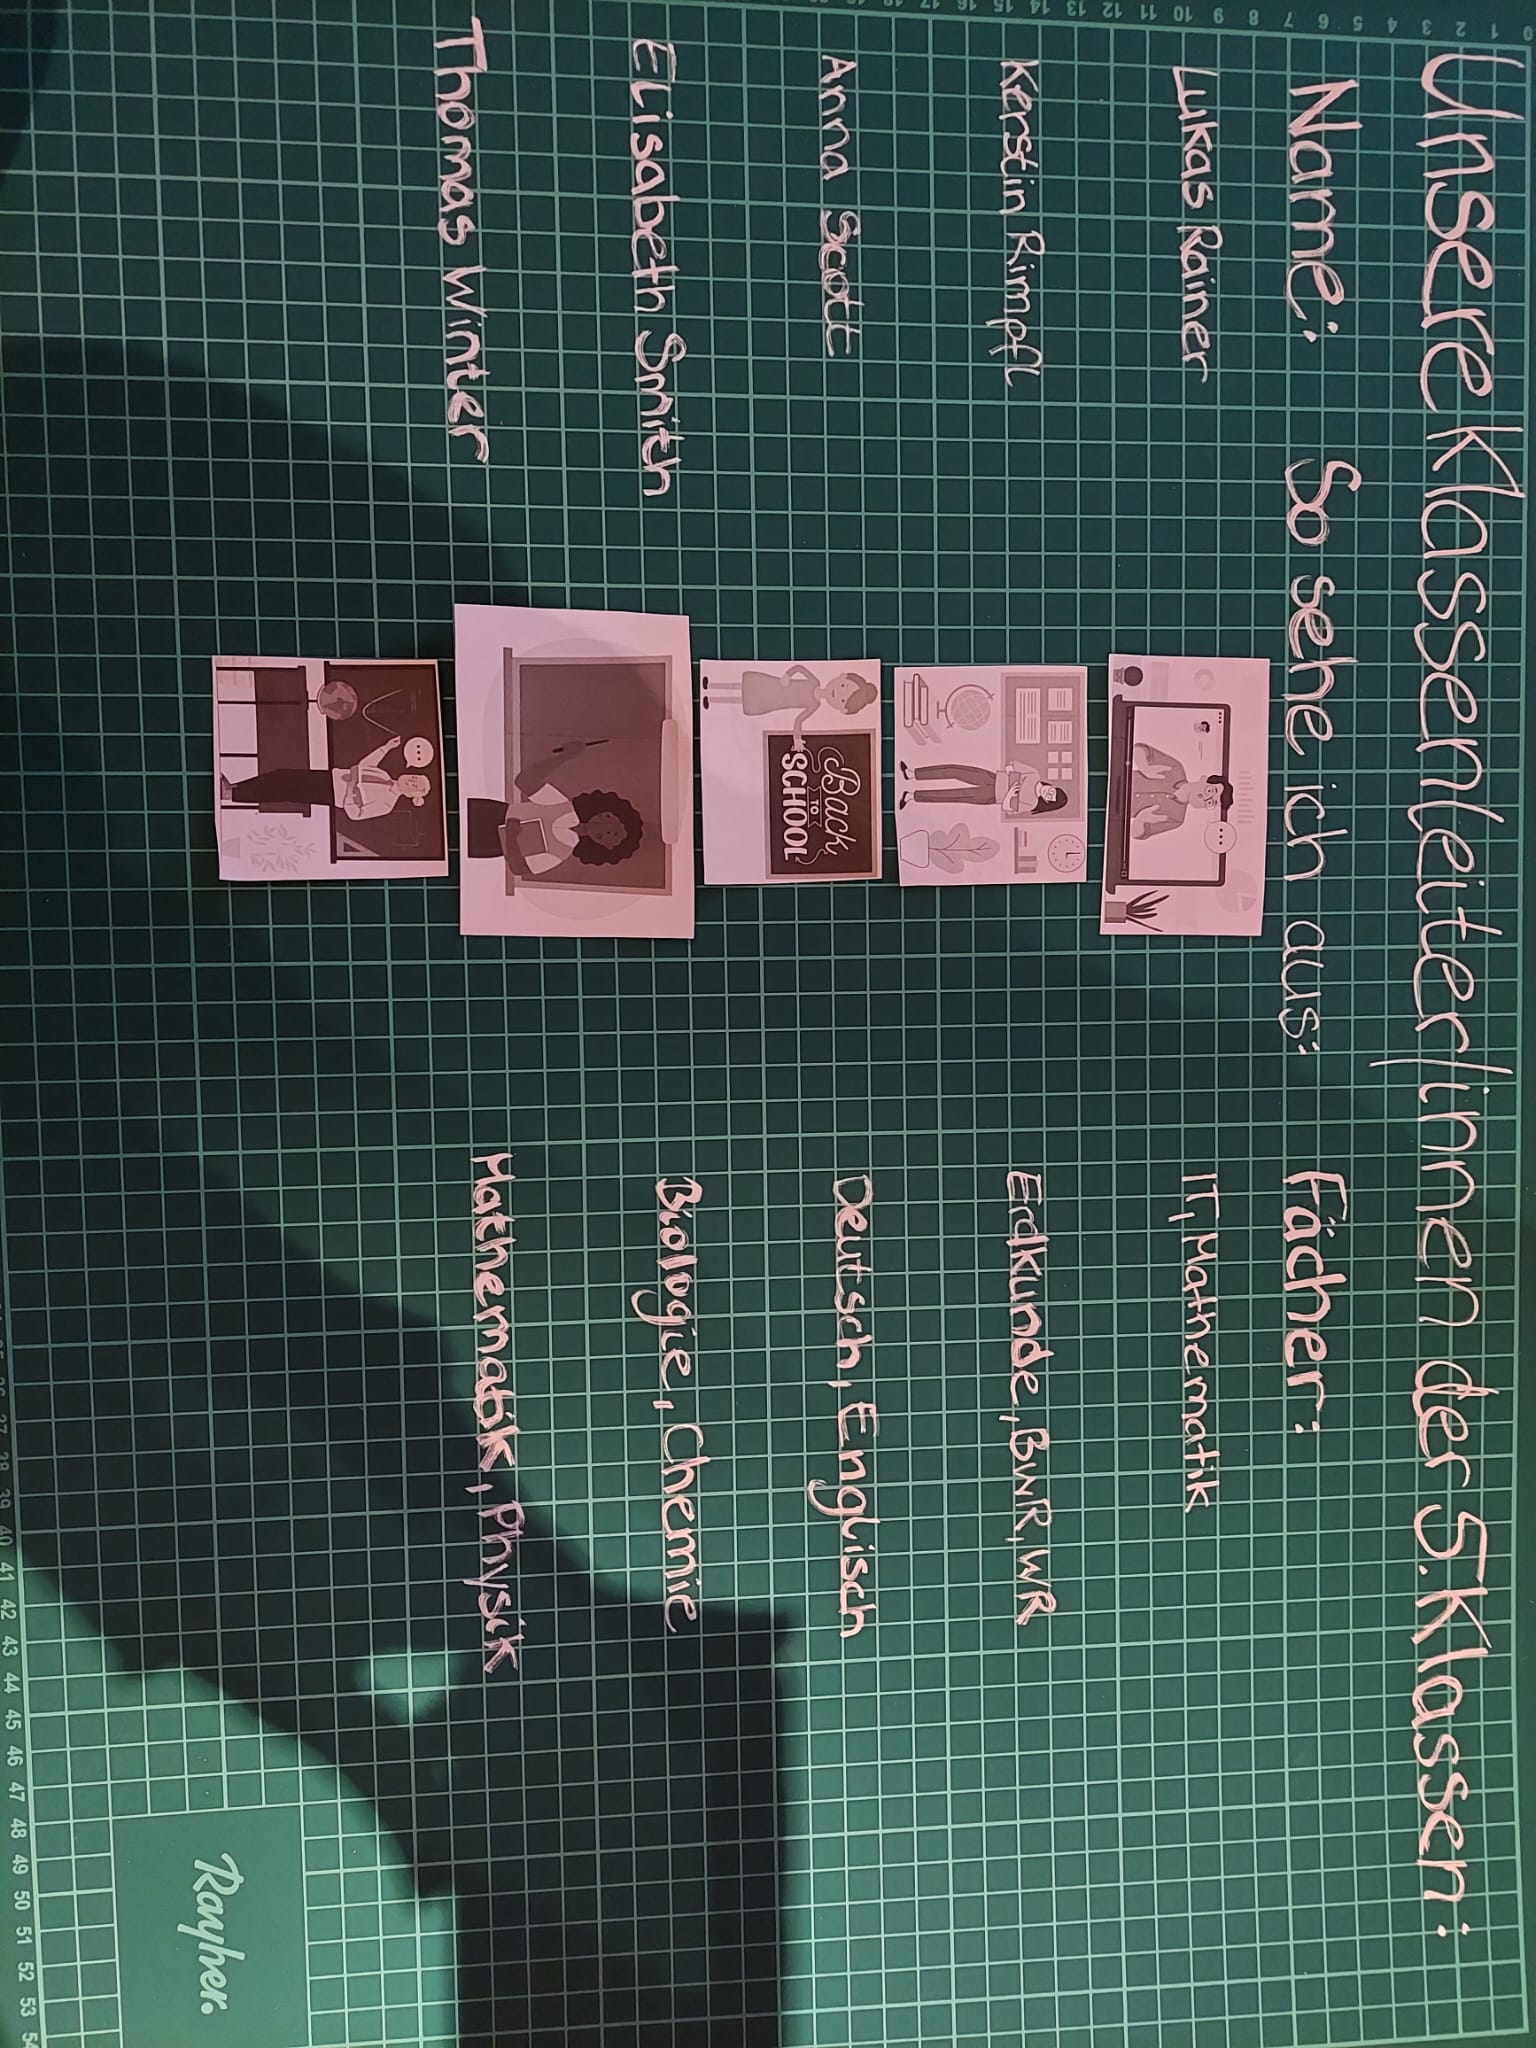 Unsere Klassenleiter/innen der 5. Klassen:
Name: So sehe ich aus: Fächer:
Lukas Rainer IT, Mathematik
Kerstin Rimpfl Erdkunde, BwR, WR
Anna Scott Deutsch, Englisch
Back
TO
SCHOOL
Elisabeth Smith Biologie, Chemie
Thomas Winter Mathematik, Physik
Rayher.
0
1
2
3
4
5
6
7
8
9
10
11
12
13
14
15
16
17
40 41 42 43 44 45 46 47 48 49 50 51 52 53 54